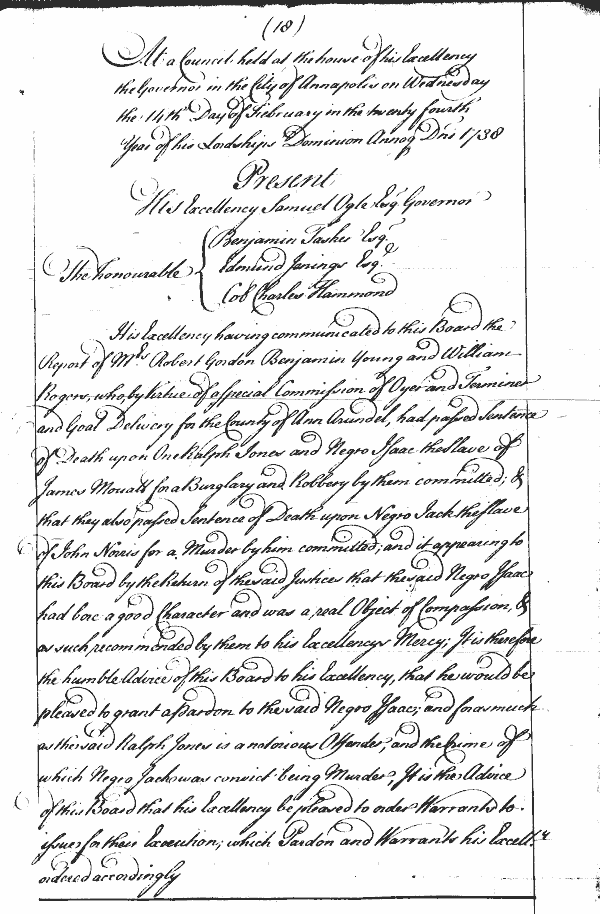 (18)
At a Council held at the house of his Excellency
the Governor in the City of Annapolis on Wednesday
the 14th Day of February in the twenty fourth
Year of his Lordships Dominion Annoq Dni 1738
Present
His Excellency Samuel Ogle Esqr Governor
Benjamin Tasker Esqr
The honourable { Edmund Jenings Esqr
Col Charles Hammond
His Excellency having communicated to this Board the
Report of Mrs Robert Gordon Benjamin Young and William
Rogers, who, by Virtue of a special Commission of Oyer and Terminer
and Goal Delivery for the County of Ann Arundel, had passed Sentence
of Death upon One Ralph Jones and Negro Isaac the Slave of
James Mouatt for a Burglary and Robbery by them committed; &
that they also passed Sentence of Death upon Negro Jack the Slave
of John Norris for a Murder by him committed; and it appearing to
this Board by the Return of the said Justices that the said Negro Isaac
had bore a good Character and was a real Object of Compassion, &
as such, recommended by them to his Excellencys Mercy; It is therefore
the humble Advice of this Board to his Excellency, that he would be
pleased to grant a Pardon to the said Negro Isaac; and forasmuch
as the said Ralph Jones is a notorious Offender, and the Crime of
which Negro Jack was convict being Murder, It is the Advice
of this Board that his Excellency be pleased to order Warrants to
issue for their Execution; which Pardon and Warrants his Excellcy
ordered accordingly